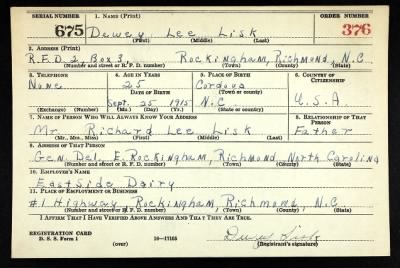 SERIAL NUMBER 1. NAME (Print) ORDER NUMBER
675 Dewey Lee Lisk 376
(First) (Middle) (Last)
2. ADDRESS (Print)
R.F.D 2, Box 3, Rockingham, Richmond, N.C.
(Number and street or R. F. D. number) (Town) (County) (State)
3. TELEPHONE 4. AGE IN YEARS 5. PLACE OF BIRTH 6. COUNTRY OF CITIZENSHIP
None 25 Cordova
DATE OF BIRTH (Town or county)
Sept. 25 1915 N.C. U.S.A.
(Exchange) (Number) (Mo.) (Day) (Yr.) (State or country)
7. NAME OF PERSON WHO WILL ALWAYS KNOW YOUR ADDRESS 8. RELATIONSHIP OF THAT PERSON
Mr. Richard Lee Lisk Father
(Mr., Mrs., Miss) (First) (Middle) (Last)
9. ADDRESS OF THAT PERSON
Gen. Del. E. Rockingham, Richmond, North Carolina
(Number and street or R. F. D. number) (Town) (County) (State)
10. EMPLOYER'S NAME
East Side Dairy
11. PLACE OF EMPLOYMENT OR BUSINESS
#1 Highway Rockingham, Richmond, N.C.
(Number and street or R. F. D. number) (Town) (County) (State)
I AFFIRM THAT I HAVE VERIFIED ABOVE ANSWERS AND THAT THEY ARE TRUE.
REGISTRATION CARD
D. S. S. Form 1 16—17105 Dewey Lisk
(over) (Registrant's signature)